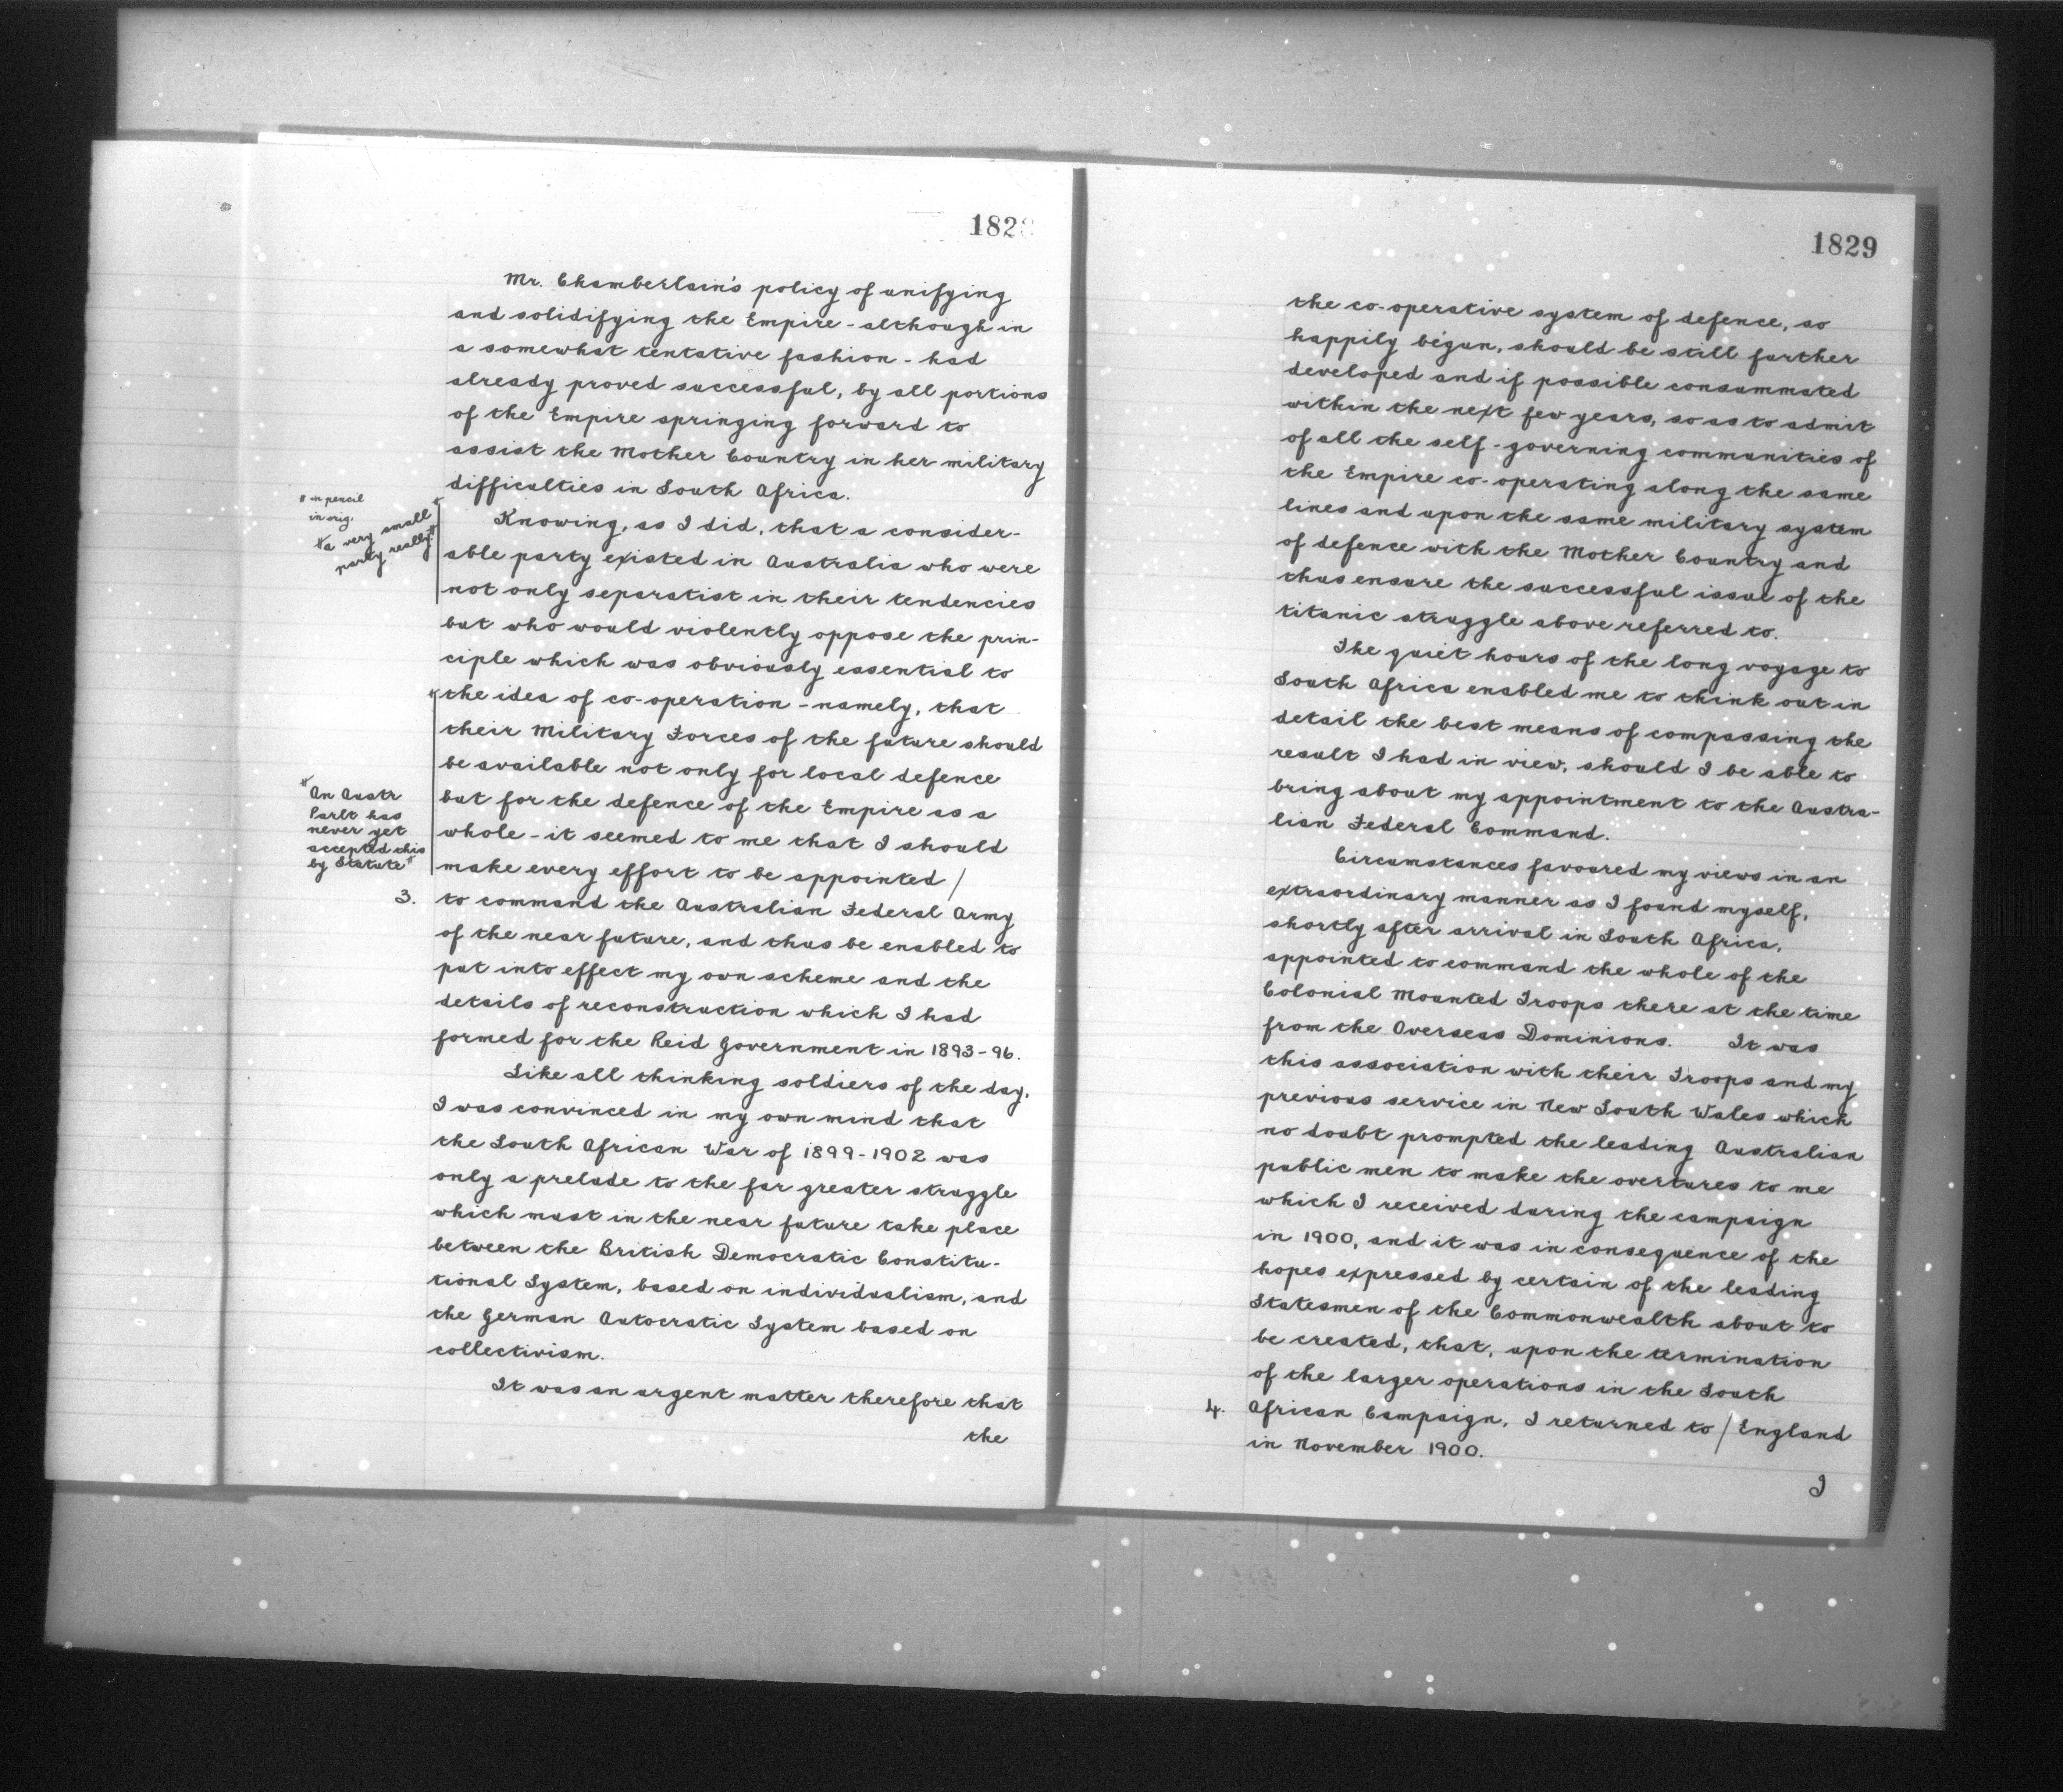 1828
Mr. Chamberlain's policy of unifying
and solidifying the Empire - although in
a somewhat tentative fashion - had
already proved successful, by all portions
of the Empire springing forward to
assist the Mother Country in her military
difficulties in South Africa.
# in pencil
in orig.
#a very small
party really#
Knowing, as I did, that a consider-
able party existed in Australia who were
not only separatist in their tendencies
but who would violently oppose the prin-
ciple which was obviously essential to
the idea of co-operation - namely, that
their Military Forces of the future should
be available not only for local defence
but for the defence of the Empire as a
whole - it seemed to me that I should
make every effort to be appointed /
#An Austr
Parlt has
never yet
accepted this
by Statute#
3. to command the Australian Federal Army
of the near future, and thus be enabled to
put into effect my own scheme and the
details of reconstruction which I had
formed for the Reid Government in 1893-96.
Like all thinking soldiers of the day,
I was convinced in my own mind that
the South African War of 1899-1902 was
only a prelude to the far greater struggle
which must in the near future take place
between the British Democratic Constitu-
tional System, based on individualism, and
the German Autocratic System based on
collectivism.
It was an urgent matter therefore that
the
1829
the co-operative system of defence, so
happily begun, should be still further
developed and if possible consummated
within the next few years, so as to admit
of all the self-governing communities of
the Empire co-operating along the same
lines and upon the same military system
of defence with the Mother Country and
thus ensure the successful issue of the
titanic struggle above referred to.
The quiet hours of the long voyage to
South Africa enabled me to think out in
detail the best means of compassing the
result I had in view, should I be able to
bring about my appointment to the Austra-
lian Federal Command.
Circumstances favoured my views in an
extraordinary manner as I found myself,
shortly after arrival in South Africa,
appointed to command the whole of the
Colonial Mounted Troops there at the time
from the Overseas Dominions. It was
this association with their Troops and my
previous service in New South Wales which
no doubt prompted the leading Australian
public men to make the overtures to me
which I received during the campaign
in 1900, and it was in consequence of the
hopes expressed by certain of the leading
Statesmen of the Commonwealth about to
be created, that, upon the termination
of the larger operations in the South
4. African Campaign, I returned to / England
in November 1900.
I